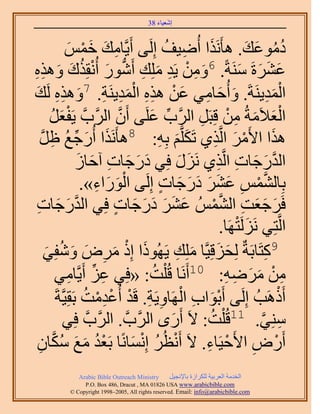 إشعياء 38
دُمُوعَكَ. هأَنَذَا أُضِيفُ إِلَى أَيَّامِكَ خَمْسَ
عَشَرَةَ سَنَةً. 6وَمِنْ يَدِ مَلِكِ أَشُّورَ أُنْقِذُكَ وَهذِهِ
الْمَدِينَةَ. وَأُحَامِي عَنْ هذِهِ الْمَدِينَةِ. 7وَهذِهِ لَكَ
الْعَلاَمَةُ مِنْ قِبَلِ الرَّبِّ عَلَى أَنَّ الرَّبَّ يَفْعَلُ
هذَا الأَمْرَ الَّذِي تَكَلَّمَ بِهِ: 8هأَنَذَا أُرَجِّعُ ظِلَّ
الدَّرَجَاتِ الَّذِي نَزَلَ فِي دَرَجَاتِ آحَازَ
بِالشَّمْسِ عَشَرَ دَرَجَاتٍ إِلَى الْوَرَاءِ».
فَرَجَعَتِ الشَّمْسُ عَشَرَ دَرَجَاتٍ فِي الدَّرَجَاتِ
الَّتِي نَزَلَتْهَا.
9كِتَابَةٌ لِحَزَقِيَّا مَلِكِ يَهُوذَا إِذْ مَرِضَ وَشُفِيَ
مِنْ مَرَضِهِ: 10أَنَا قُلْتُ: «فِي عِزِّ أَيَّامِي
أَذْهَبُ إِلَى أَبْوَابِ الْهَاوِيَةِ. قَدْ أُعْدِمْتُ بَقِيَّةَ
سِنِيَّ. 11قُلْتُ: لاَ أَرَى الرَّبَّ. الرَّبَّ فِي
أَرْضِ الأَحْيَاءِ. لاَ أَنْظُرُ إِنْسَانًا بَعْدُ مَعَ سُكَّانِ
Arabic Bible Outreach Ministry الخدمة العربية للكرازة بالإنجيل
P.O. Box 486, Dracut , MA 01826 USA www.arabicbible.com
© Copyright 1998–2005, All rights reserved. Email: info@arabicbible.com